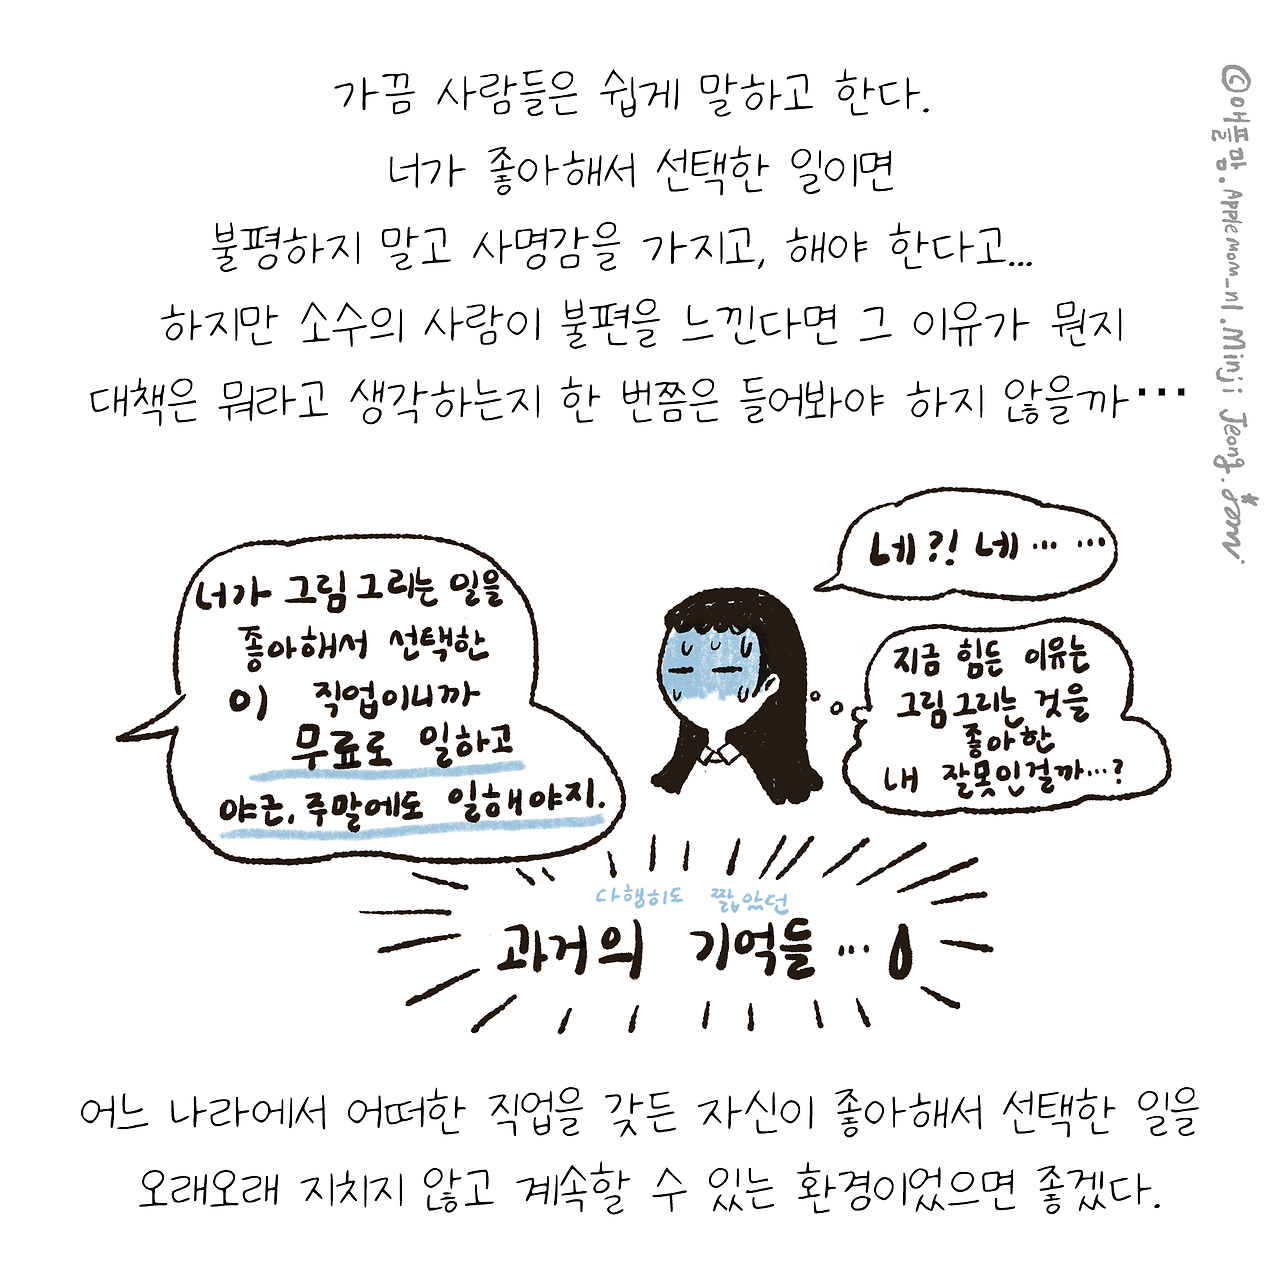 가끔 사람들은 쉽게 말하고 한다.
너가 좋아해서 선택한 일이면
불평하지 말고 사명감을 가지고, 해야 한다고...
하지만 소수의 사람이 불편을 느낀다면 그 이유가 뭔지
대책은 뭐라고 생각하는지 한 번쯤은 들어봐야 하지 않을까...
©애플맘.Applemom_nl.Minji Jeong.
네?! 네... ...
너가 그림 그리는 일을
좋아해서 선택한
이 직업이니까
무료로 일하고
야근, 주말에도 일해야지.
지금 힘든 이유는
그림 그리는 것을
좋아한
내 잘못인걸까...?
다행히도 짧았던
과거의 기억들...
어느 나라에서 어떠한 직업을 갖든 자신이 좋아해서 선택한 일을
오래오래 지치지 않고 계속할 수 있는 환경이었으면 좋겠다.